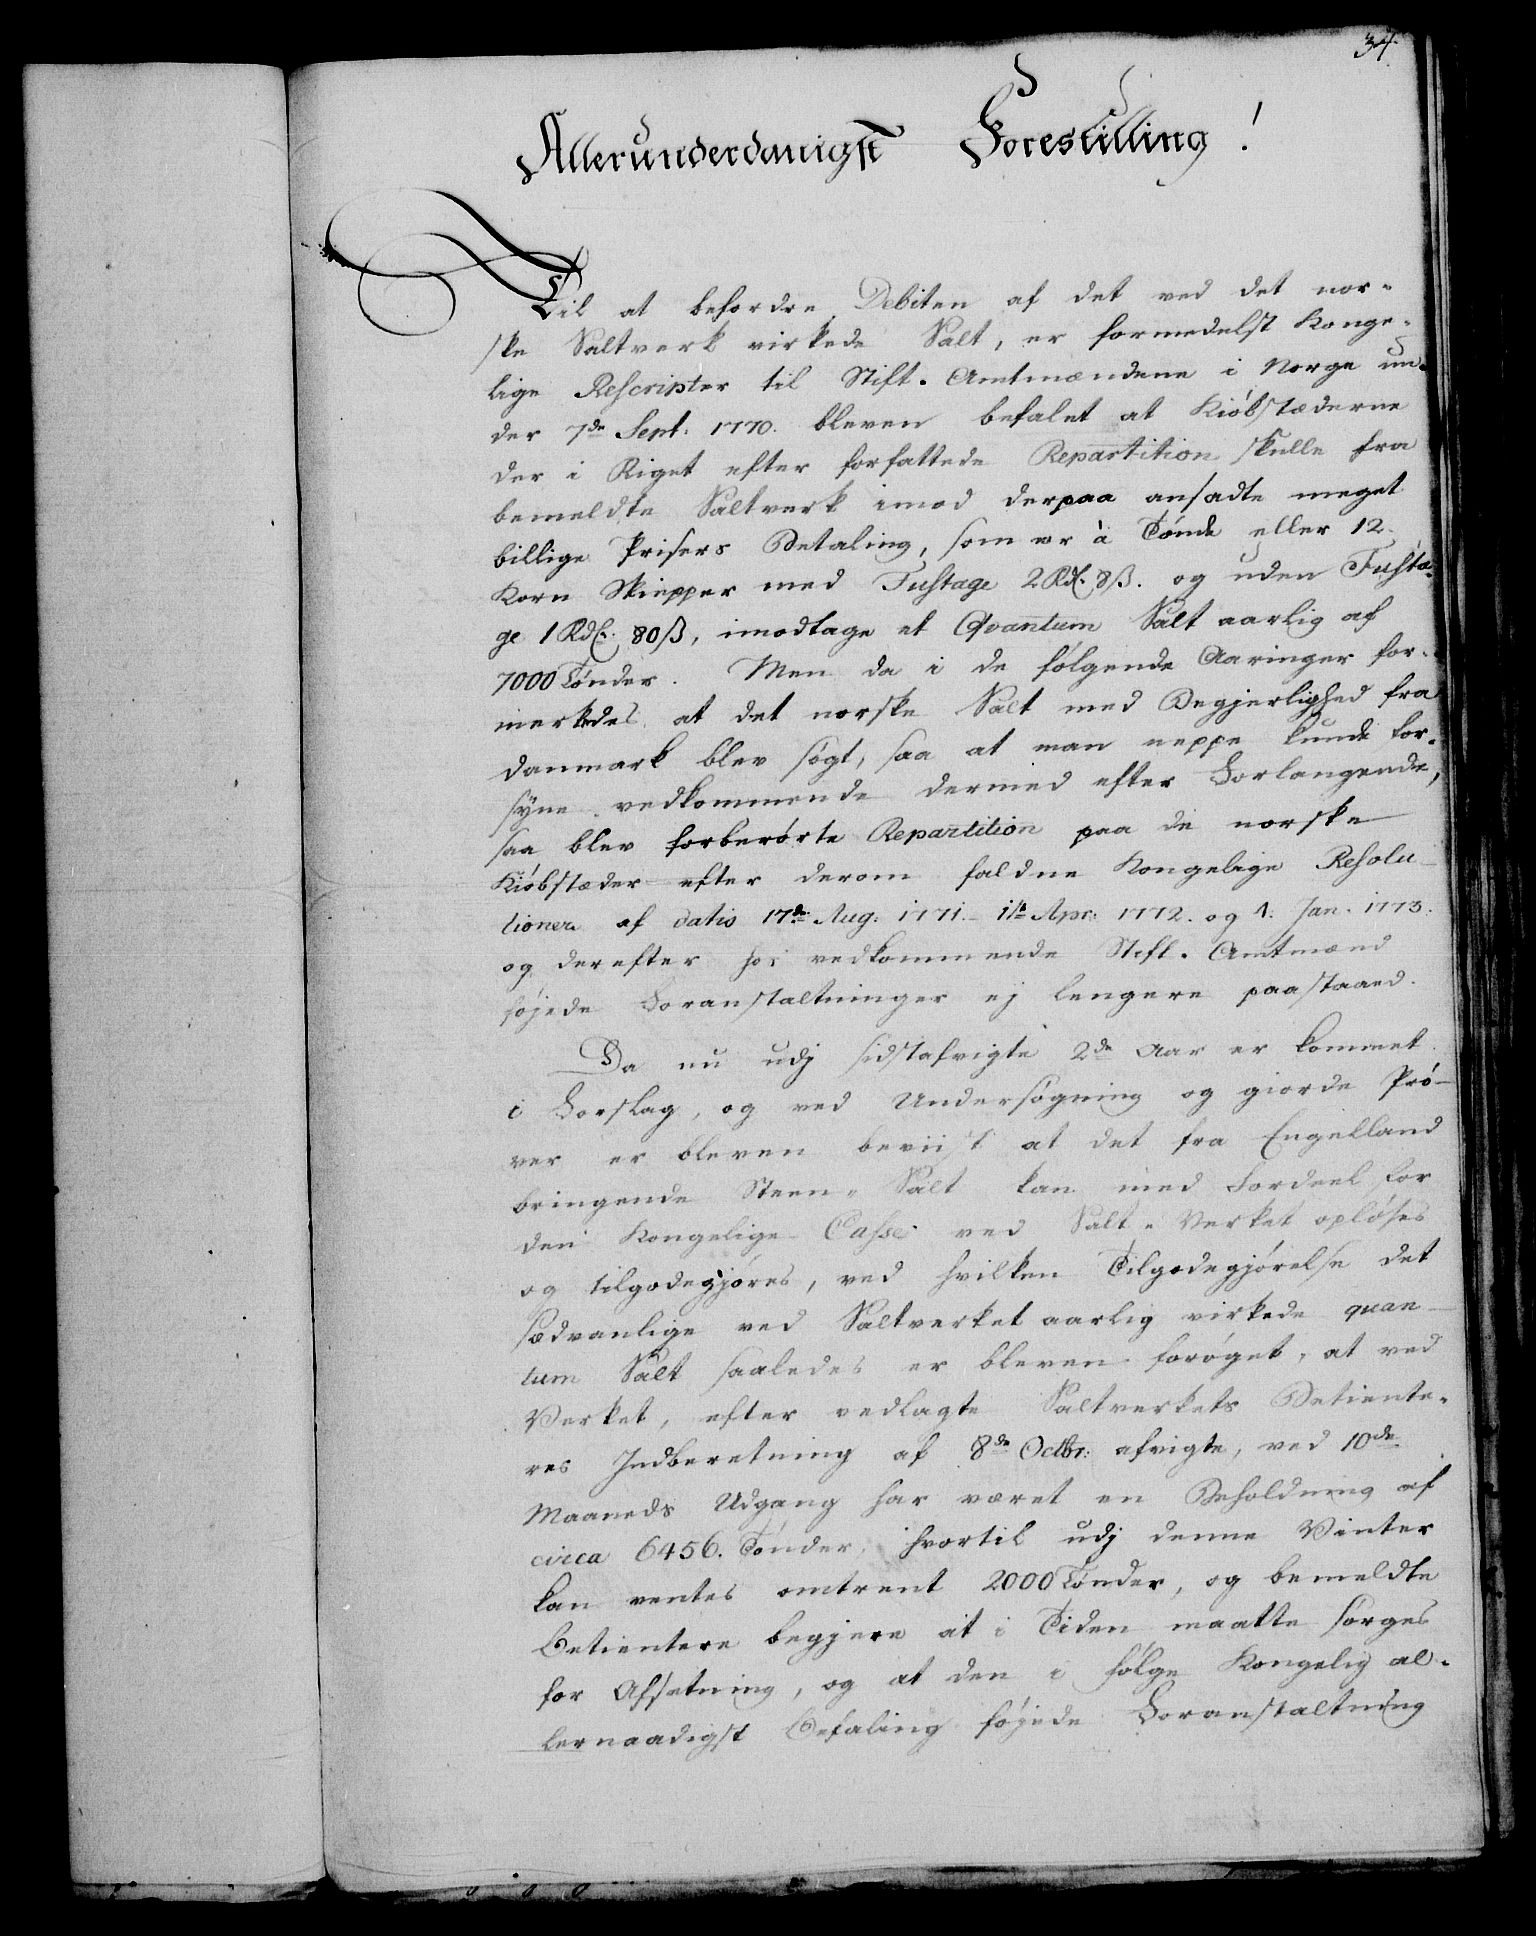 34.
Allerunderdanigst Forestilling!
Til at befordre Debiten af det ved det nor-
ske Saltverk virkede Salt, er formedelst Konge-
lige Rescripter til Stift-Amtmændene i Norge un-
der 7de Sept: 1770. bleven befalet at Kiøbstæderne
der i Riget efter forfattede Repartition skulle fra
bemeldte Saltverk imod derpaa ansadte meget
billige Prisers Betaling, som er à Tønde eller 12
Korn Skiepper med Fustage 2 Rdl. 8ß. og uden Fusta-
ge 1 Rdl. 80ß, imodtage et Qvantum Salt aarlig af
7000 Tønder. Men da i de følgende Aaringer for-
merkedes at det norske Salt med Begjerlighed fra
Danmark blev søgt, saa at man neppe kunde for-
syne vedkommende dermed efter Forlangende,
saa blev forberørte Repartition paa de norske
Kiøbstæder efter derom faldne Kongelige Resolu-
tioner af datis 17de Aug: 1771. 1ste Apr: 1772. og 1. Jan. 1773.
og derefter hos vedkommende Stift-Amtmænd
føjede Foranstaltninger ej lengere paastaaed.
Da nu udj sidstafvigte 2de Aar er kommet
i Forslag, og ved Undersøgning og giorde Prø-
ver er bleven beviist at det fra Engelland
bringende Steen-Salt kan med Fordeel for
den Kongelige Casse ved Salt-Verket opløses
og tilgodegjøres, ved hvilken Tilgodegjørelse det
sædvanlige ved Saltverket aarlig virkede quan-
tum Salt saaledes er bleven forøget, at ved
Verket, efter vedlagte Saltverkets Betiente-
res Indberetning af 8de Octbr: afvigte, ved 10de
Maaneds Udgang har været en Beholdning af
circa 6456. Tønder, hvortil udj denne Vinter
kan ventes omtrent 2000 Tønder, og bemeldte
Betientere begjere at i Tiden maatte sørges
for Afsetning, og at den i følge Kongelig al-
lernaadigst Befaling føjede Foranstaltning